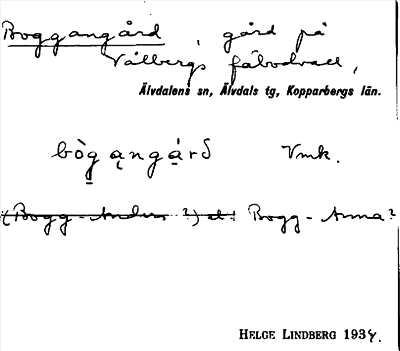 Boggangård, gård på
Vålbergs fäbodvall,
Älvdalens sn, Älvdals tg, Kopparbergs län.
bòg ąngạrð Vmk.
(Bogg-Anders ?) el. Bogg-Anna?
HELGE LINDBERG 1934.